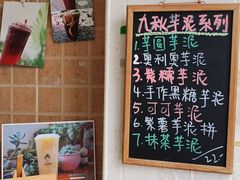 九秋芋泥系列
1.芋圆芋泥
2.奥利奥芋泥
3.紫糯芋泥
4.手作黑糖芋泥
5.可可芋泥
6.紫薯芋泥拼
7.抹茶芋泥
/22.